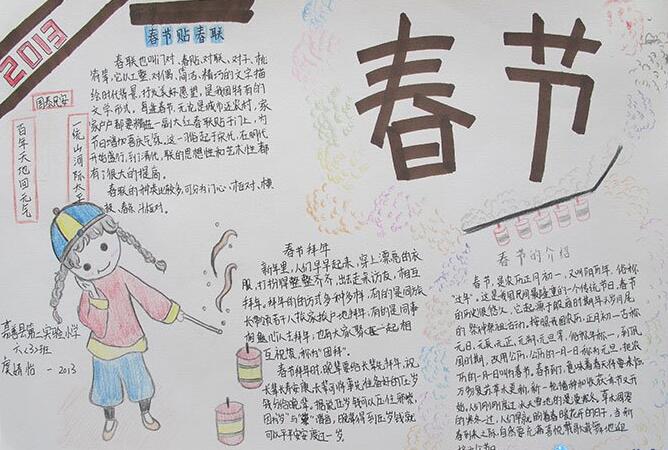 2013
春节贴春联
春联也叫门对、春贴、对联、对子、桃
符等,它以工整、对偶、简洁、精巧的文字描
绘时代背景,抒发美好愿望,是我国特有的
文学形式。每逢春节,无论是城市还是农村,家
家户户都要精选一副大红春联贴于门上,为
节日增加喜庆气氛。这一习俗起于宋代,在明代
开始盛行,到了清代,联的思想性和艺术性都
有了很大的提高。
春联的种类比较多,可分为门心、框对、横
披、春条、斗框对。
国泰民安
百年天地回元气
一统山河际太平
春节
春节拜年
新年里,人们早早起来,穿上漂亮的衣
服,打扮得整整齐齐,出去走亲访友,相互
拜年,拜年的的方式多种多样,有的是同族
长带领若干人挨家挨户地拜年,有的是同事
相邀
也有大家聚在一起相
互祝贺,称为“团拜”。
春节拜年时,晚辈要给长辈先拜年,祝
长辈长寿安康,长辈可将事先准备好的压岁
钱分给晚辈,据说压岁钱可以压住邪祟,
因为“岁”与“祟”谐音,晚辈得到压岁钱就
可以平平安安度过一岁。
春节的介绍
春节,是农历正月初一,又叫阴历年,俗称
“过年”。这是我国民间最隆重的一个传统节日。春节
的历史很悠久,它起源于殷商时期年头岁尾
的祭神祭祖活动。按照我国农历,正月初一古称
元日、元辰、元正、元朔、元旦等,俗称年初一,到民
国时期,改用公历,公历的一月一日称为元旦,把农
历的一月一日叫春节。春节到了,意味着春天将要来临,
万物复苏草木更新,新一轮播种和收获季节又开
始。人们刚刚度过冰天雪地的
草木凋零
的
早就盼着春暖花开的日子,当新
春到来之际,自然要充满喜悦载歌载舞地迎
接这个节日。
嘉善县第二实验小学
六(3)班
2013